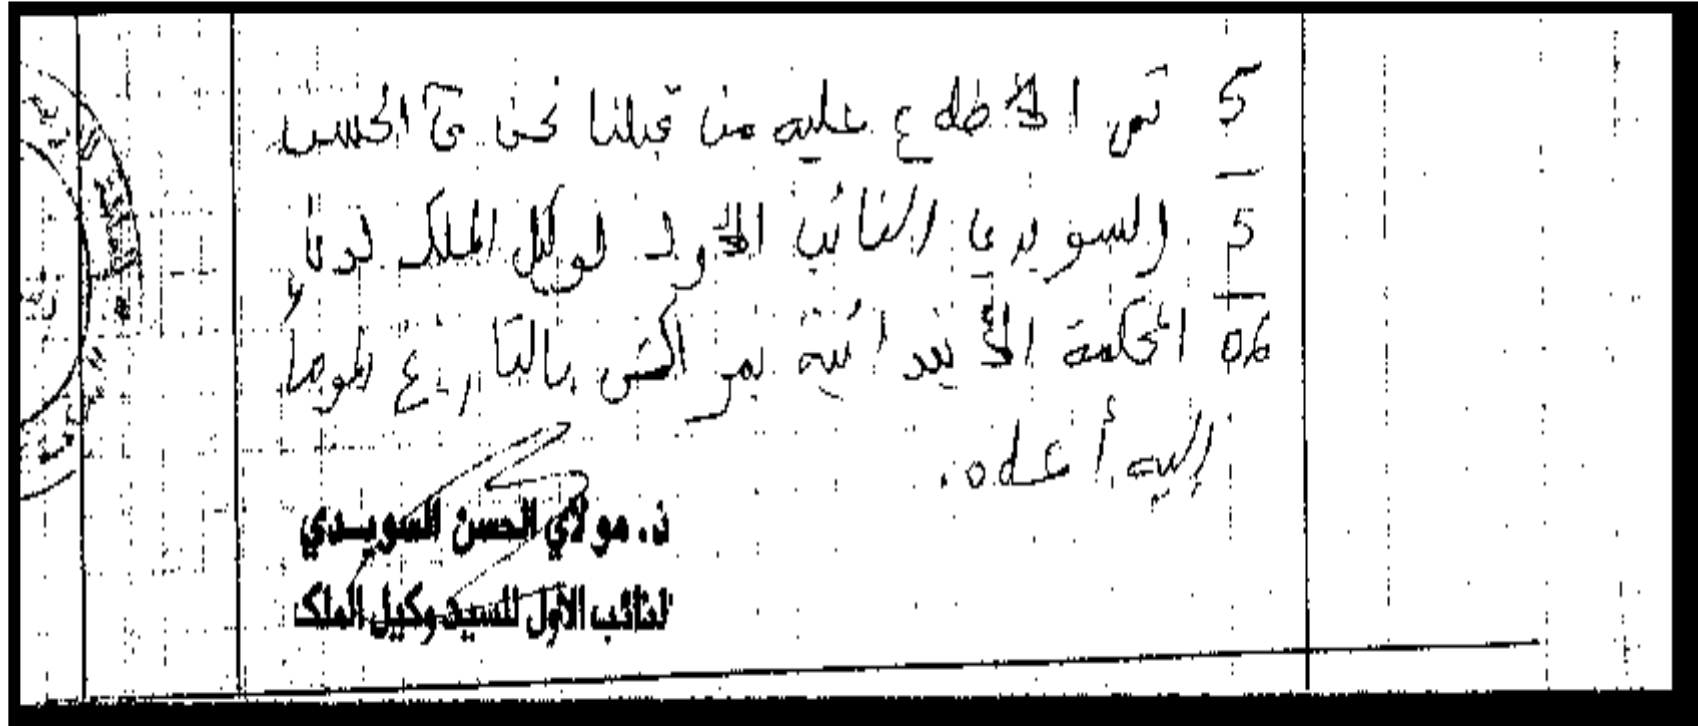 5 تم الاطلاع عليه من قبلنا نحن م الحسن
5 السويدي النائب الأول لوكيل الملك لدى
06 المحكمة الابتدائية بمراكش بالتاريخ الموما
إليه أعلاه.
ذ. مولاي الحسن السويدي
النائب الأول للسيد وكيل الملك